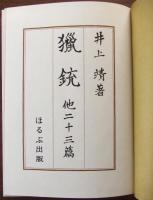 井上靖著
猟銃
他二十三篇
ほるぷ出版